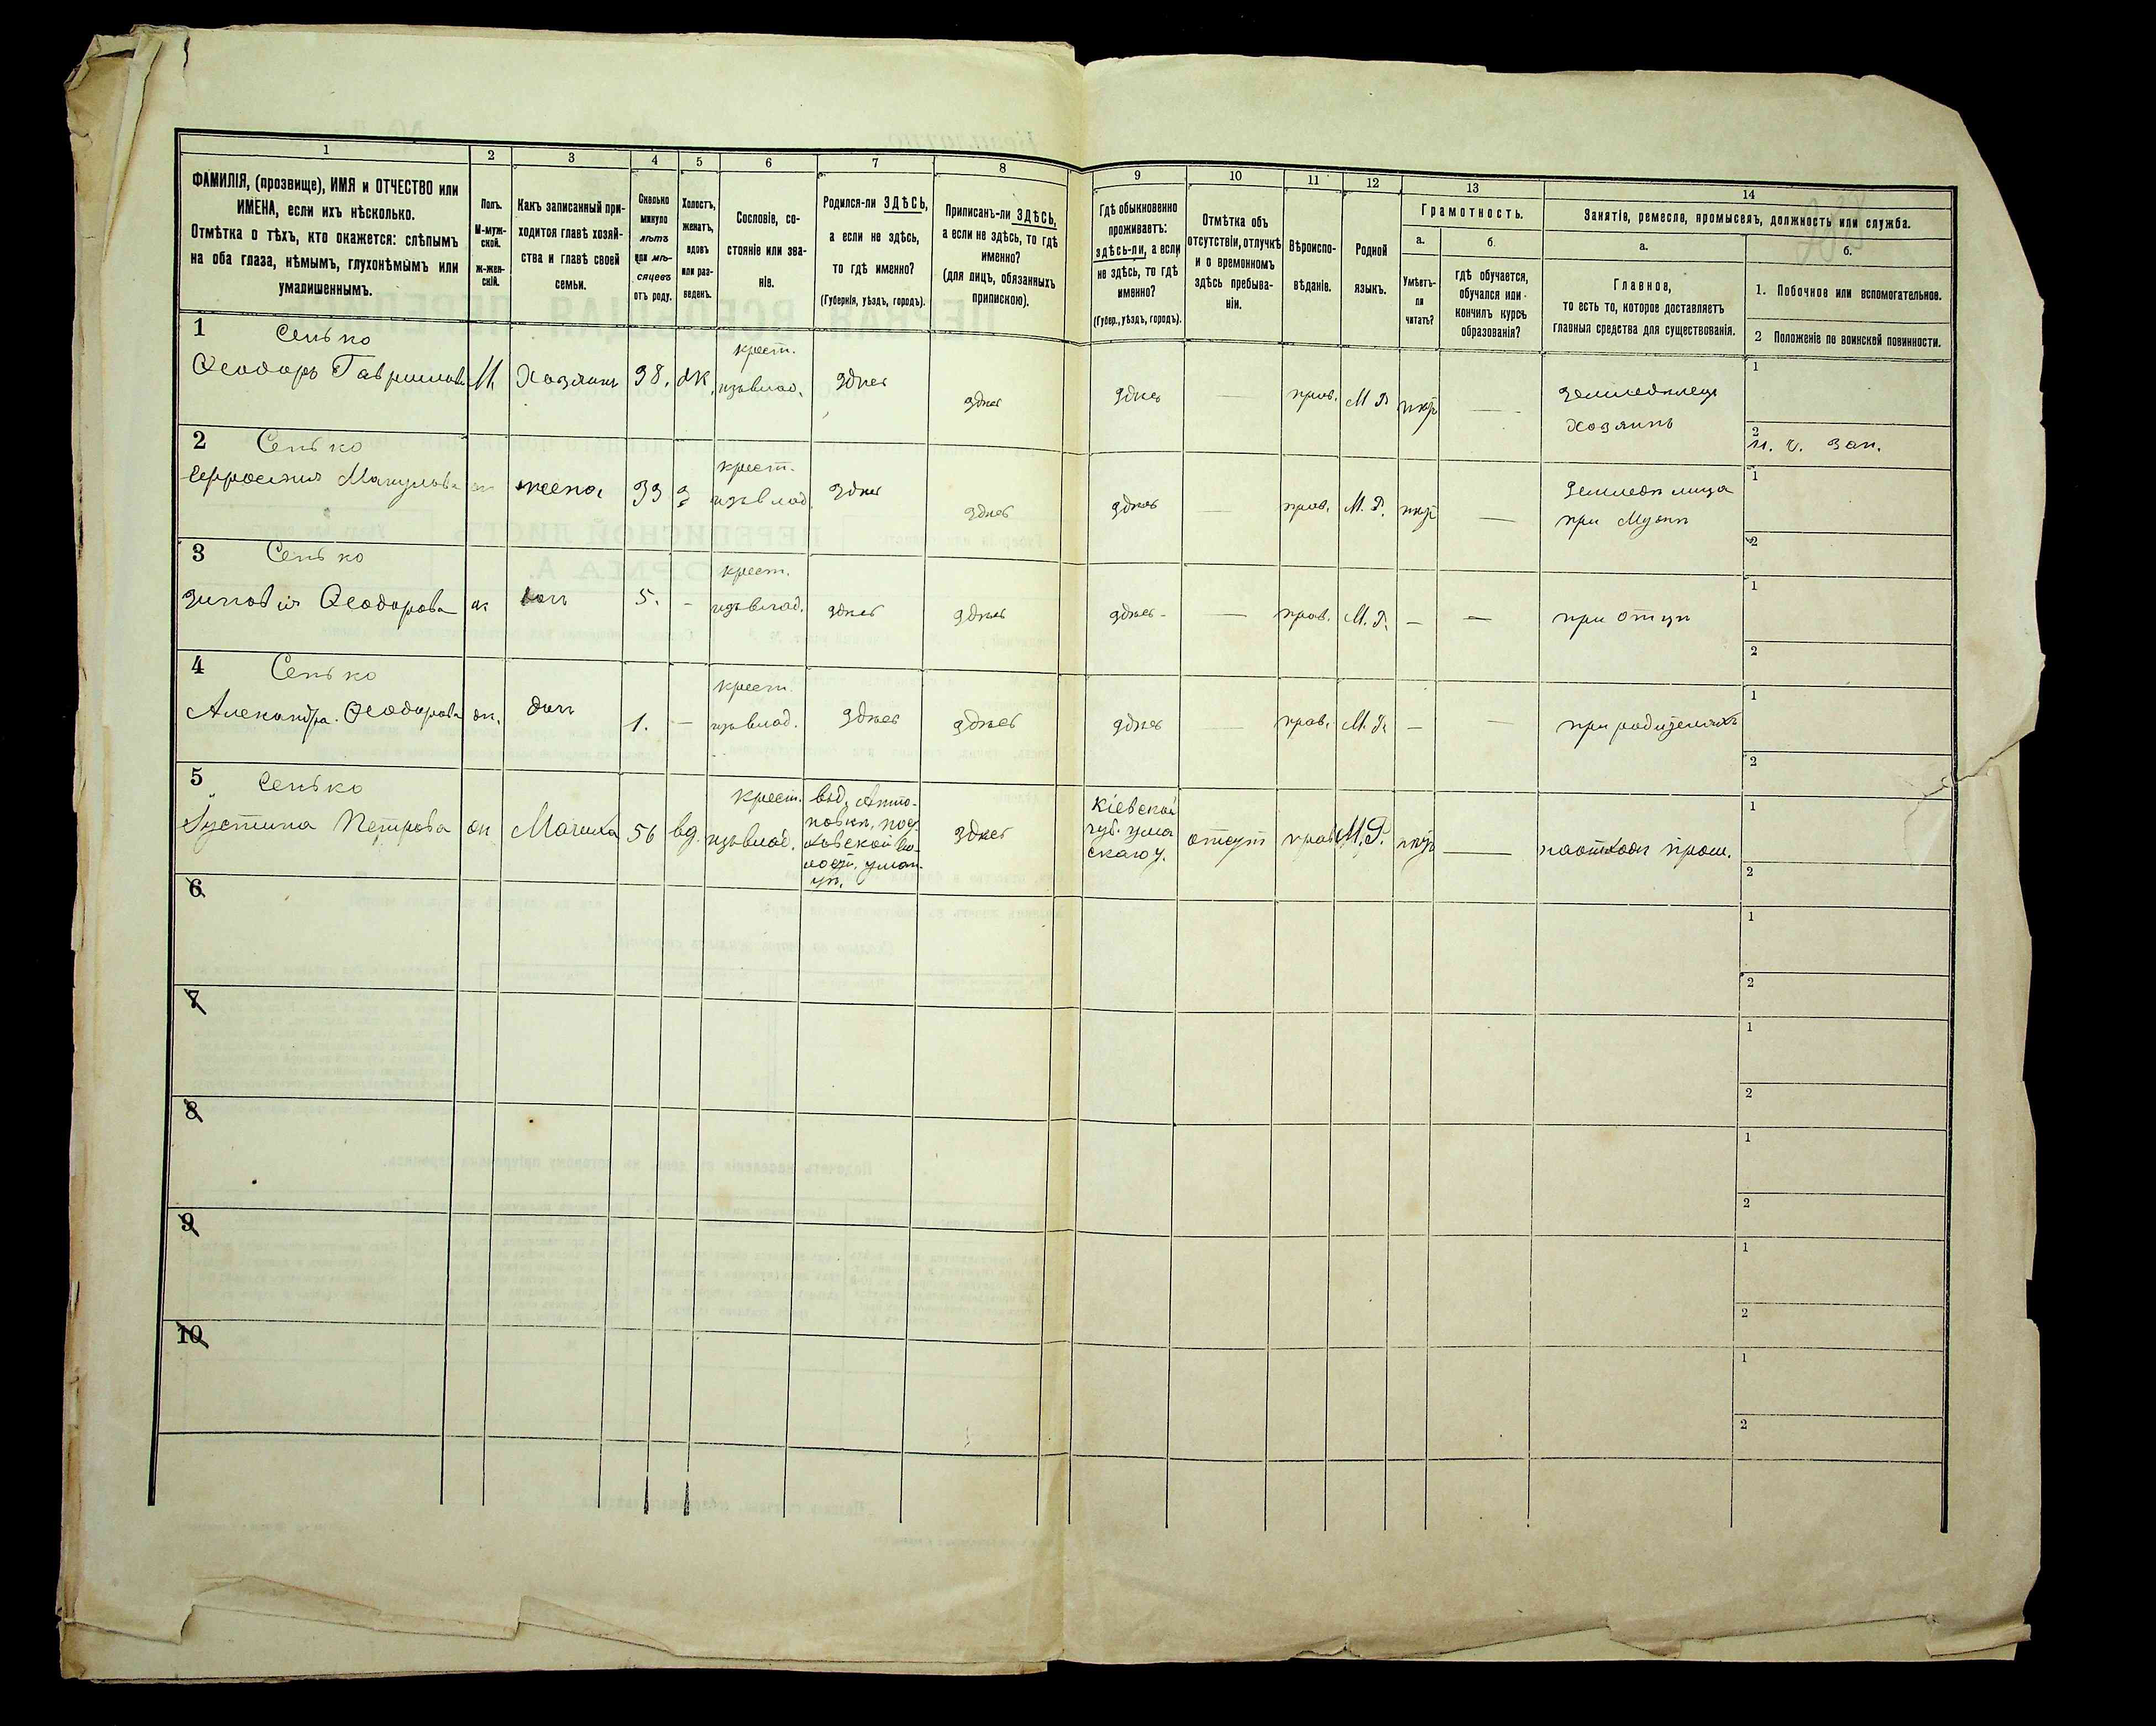 1
ФАМИЛІЯ, (прозвище), ИМЯ и ОТЧЕСТВО или
ИМЕНА, если ихъ нѣсколько.
Отмѣтка о тѣхъ, кто окажется: слѣпымъ
на оба глаза, нѣмымъ, глухонѣмымъ или
умалишеннымъ.
2
Полъ.
М-муж-
ской.
ж-жен-
скій.
3
Какъ записанный при-
ходится главѣ хозяй-
ства и главѣ своей
семьи.
4
Сколько
минуло
лѣтъ
или мѣ-
сяцевъ
отъ роду.
5
Холостъ,
женатъ,
вдовъ
или раз-
веденъ.
6
Сословіе, со-
стояніе или зва-
ніе.
7
Родился-ли ЗДѢСЬ,
а если не здѣсь,
то гдѣ именно?
(Губернія, уѣздъ, городъ).
8
Приписанъ-ли ЗДѢСЬ,
а если не здѣсь, то гдѣ
именно?
(для лицъ, обязанныхъ
припискою).
9
Гдѣ обыкновенно
проживаетъ:
здѣсь-ли, а если
не здѣсь, то гдѣ
именно?
(Губер., уѣздъ, городъ).
10
Отмѣтка объ
отсутствіи, отлучкѣ
и о временномъ
здѣсь пребыва-
ніи.
11
Вѣроиспо-
вѣданіе.
12
Родной
языкъ.
13
Грамотность.
а.
Умѣетъ-
ли
читать?
б.
гдѣ обучается,
обучался или
кончилъ курсъ
образованія?
14
Занятіе, ремесло, промыселъ, должность или служба.
а.
Главное,
то есть то, которое доставляетъ
главныя средства для существованія.
б.
1. Побочное или вспомогательное.
2 Положеніе по воинской повинности.
1 Сенько
Ѳеодоръ М Хозяинъ 38. ж крест.
изъ влад. здѣсь здѣсь здѣсь — прав. М Р — земледѣлецъ
хозяинъ
1
2
н. ч. зап.
2 Сенько
жена 33 з крест.
изъ влад. здѣсь здѣсь здѣсь — прав. М. Р. —
при мужѣ
1
2
3 Сенько
Зиновія Ѳеодорова ж дочь 5. - крест.
изъ влад. здѣсь здѣсь здѣсь — прав. М. Р. — — при отцѣ
1
2
4 Сенько
Александра Ѳеодорова ж. дочь 1. — крест.
изъ влад. здѣсь здѣсь здѣсь — прав. М. Р. — — при родителяхъ
1
2
5 Сенько
Іустина Петрова ж Мачиха 56 вд. крест.
изъ влад. здѣсь Кіевской
губ. ума
скаго у. отсут прав М. Р. —
1
2
6
1
2
7
1
2
8
1
2
9
1
2
10
1
2